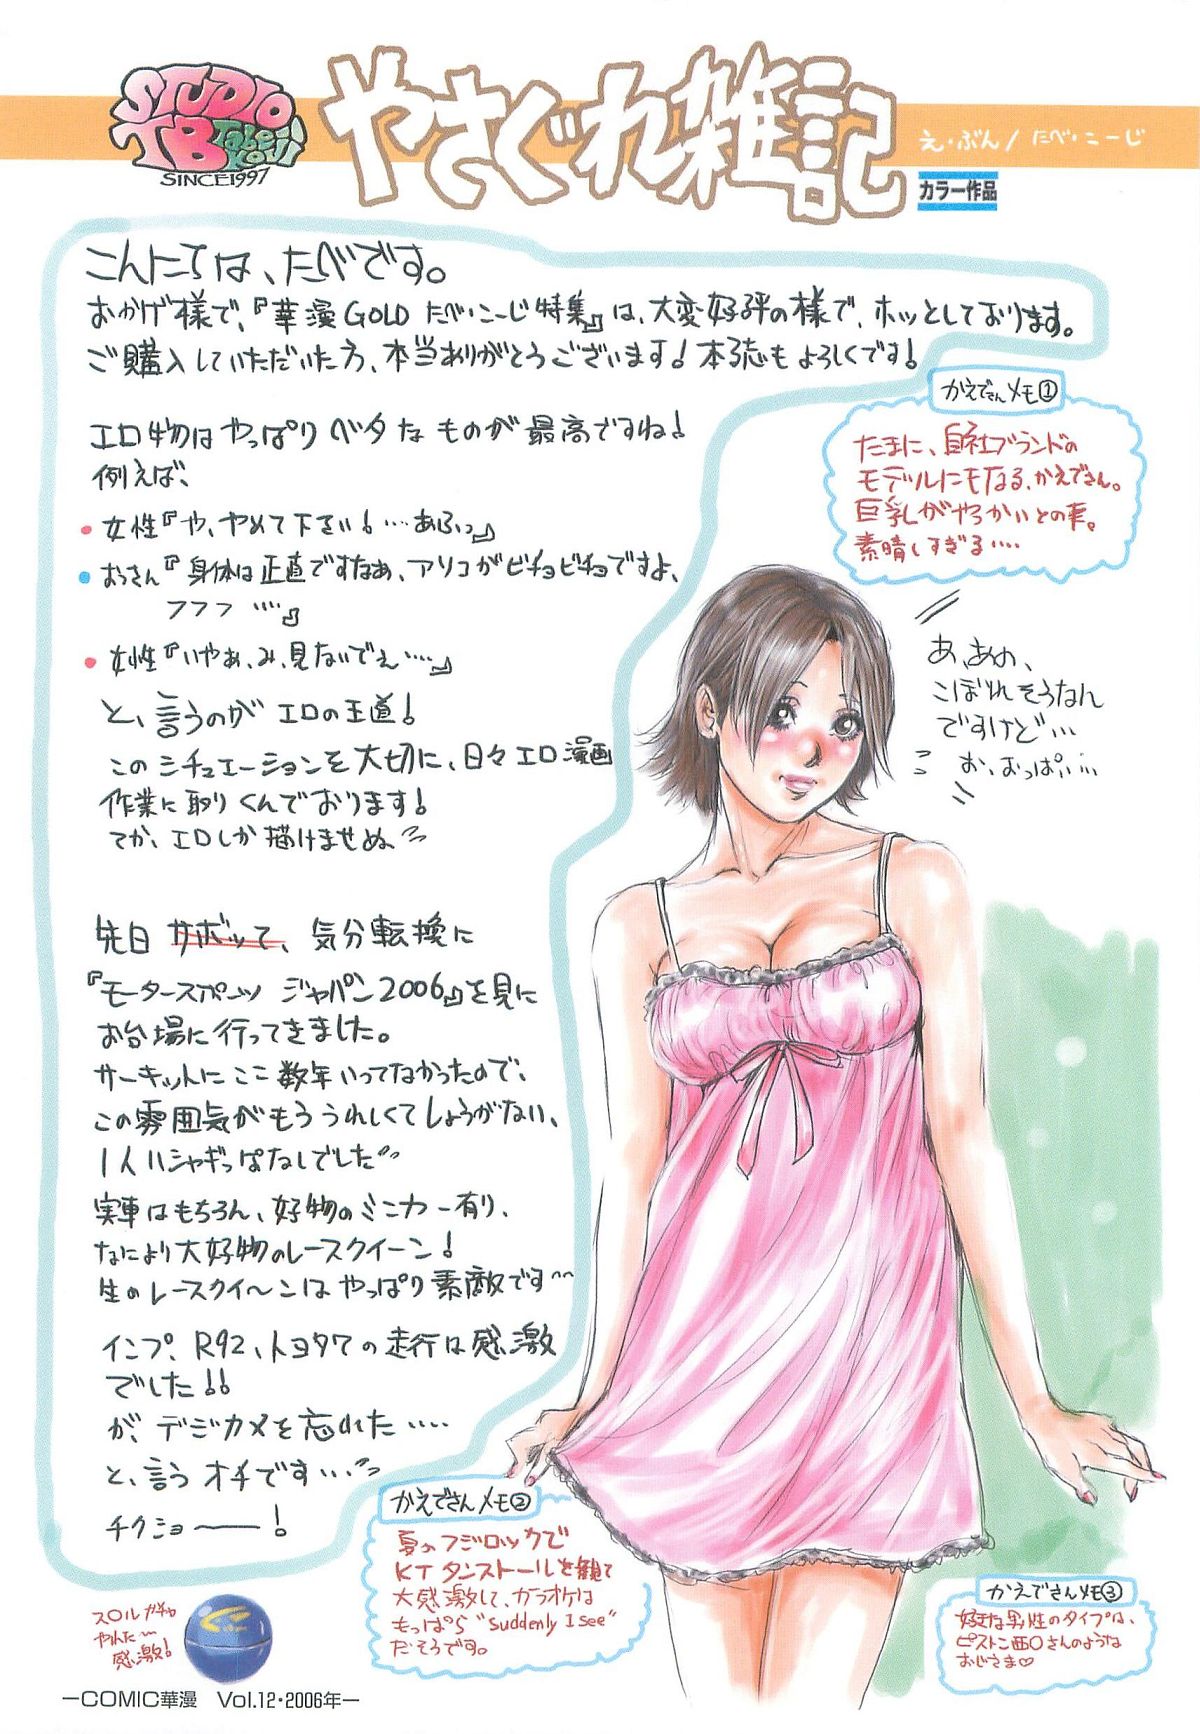 STUDIO
TB Tabe Koji
SINCE1997
やさぐれ雑記
え・ぶん/たべ・こーじ
カラー作品
こんにちは、たべです。
おかげ様で、『華漫GOLD たべ・こーじ特集』は、大変好評の様で、ホッとしております。
ご購入していただいた方、本当ありがとうございます!本る志もよろしくです!
エロ物はやっぱりベタなものが最高ですね!
例えば、
女性『や、やめて下さい!…あふっ』
おっさん『身体は正直ですなぁ、アソコがビチョビチョですよ、
フフフ…』
女性『いやぁ、み、見ないでぇ…』
と、言うのがエロの王道!
このシチュエーションを大切に、日々エロ漫画
作業に取りくんでおります!
てか、エロしか描けませぬ。
先日 サボッて、気分転換に
『モータースポーツ ジャパン2006』を見に
お台場に行ってきました。
サーキットにここ数年いってなかったので、
この雰囲気がもううれしくてしょうがない、
1人ハシャギっぱなしでした
実車はもちろん、好物のミニカー有り、
なにより大好物のレースクイーン!
生のレースクイ〜ンはやっぱり素敵です〜
インプ、R92、トヨタ7の走行は感激
でした!!
が、デジカメを忘れた……
と、言うオチです…
チクショー——!
かえでさんメモ①
たまに、自社ブランドの
モデルにもなる、かえでさん。
巨乳がやっかいとの事。
素晴しすぎる…
あ、あの、
こぼれそうなん
ですけど…
お、おっぱい…
かえでさんメモ②
夏のフジロックで
KTタンストールを観て
大感激して、カラオケは
もっぱら"Suddenly I see"
だそうです。
かえでさんメモ③
好きな男性のタイプは、
ピストン西○さんのような
おじさま♡
ス○ルガチャ
やんた〜
感激!
—COMIC華漫 Vol.12・2006年—